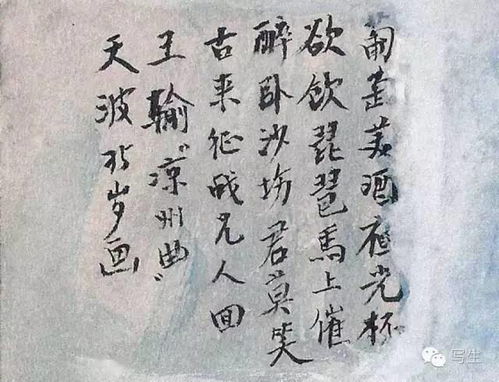 葡萄美酒夜光杯
欲饮琵琶馬上催
醉卧沙场君莫笑
古来征战几人回
王翰"凉州曲"
天波35岁画
写生